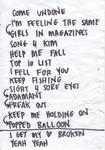 COME UNDONE
I'M FEELING THE SAME
GIRLS IN MAGAZINES
SONG 4 KIM
HELP ME FALL
TOP 10 LIST
I FELL FOR YOU
KEEP FISHING
SIGHT 4 SORE EYES
ADAMANT
FREAK OUT
KEEP ME HOLDING ON
POPPED BALLOON
I GET MY ♥ BROKEN
YEAH YEAH